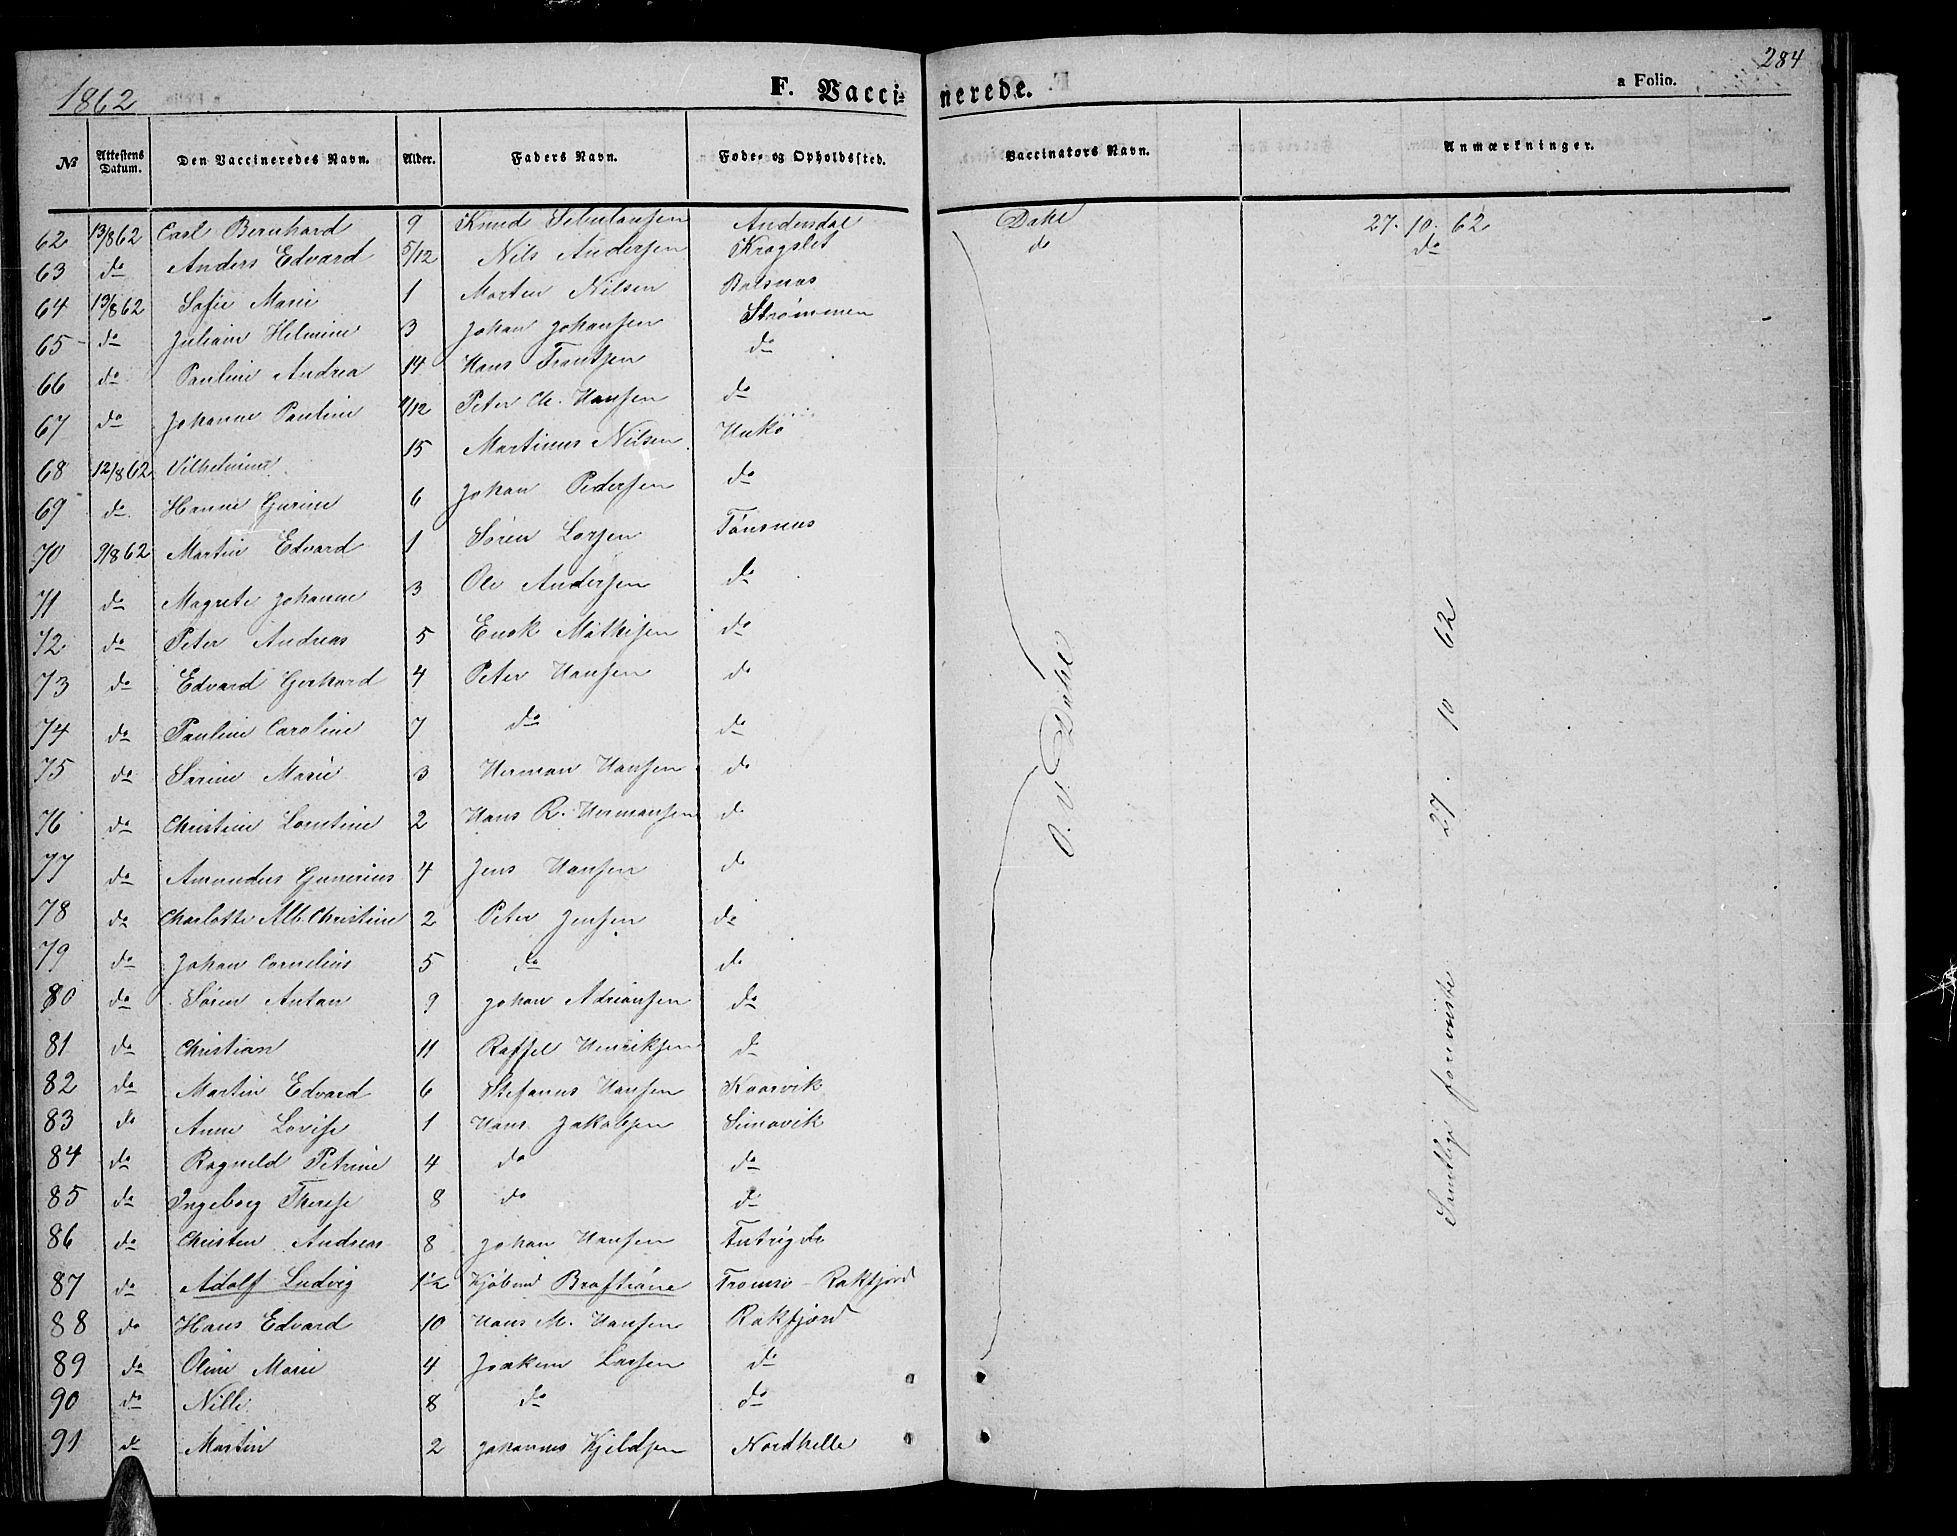 284
1862
F. Vaccinerede.
a Folio.
No Attestens Datum. Den Vaccineredes Navn. Alder. Faders Navn. Føde- og Opholdssted. Vaccinators Navn. Anmærkninger.
62 13/8 62 Carl Bernhard 9 Knud Andersdal Dahl 27. 10. 62
63 do Anders Edvard 5/12 Nils Andersen Kragslet do do
64 13/8 62 Sofie Marie 1 Morten Nilsen Balsnæs
65 do Juliane Helmine 3 Johan Johansen Strømmen
66 do Pauline Andrea 14 Hans Frantzen do
67 do Johanne Pauline /12 Peter Ch. Hansen do
68 12/8 62 Vilhelmine 15 Martinus Nilsen
69 do Hanne Gurine 6 Johan Pedersen do
70 9/8 62 Martin Edvard 1 Søren Larsen Tønsnes
71 do Magrete Johanne 3 Ole Andersen do
72 do Peter Andreas 5 Enok Mathisen do
73 do Edvard Gerhard 4 Peter Hansen do
74 do Pauline Caroline 7 do do
75 do Sørine Marie 3 Herman Hansen do
76 do Christine Lorntine 2 Hans R. Hermansen do
77 do Amandus Gunerius 4 Jens Hansen do
78 do Charlotte Alb. Christine 2 Peter Jensen do
79 do Johan Cornelius 5 do do
80 do Søren Antan 9 Johan Adriansen do
81 do Christian 11 Raffel Henriksen do
82 do Martin Edvard 6 Stefanus Hansen Kaarvik
83 do Anne Lovise 1 Hans Jakobsen Simavik
84 do Ragnild Petrine 4 do do
85 do Ingeborg Therese 8 do do
86 do Christen Andreas 8 Johan Hansen
87 do Adolf Ludvig 1 1/2 Kjøbmd Tromsø - Rakfjord
88 do Hans Edvard 10 Hans M. Hansen Rakfjord
89 do Oline Marie 4 Joakim Larsen do
90 do Nille 8 do do
91 do Martin 2 Johannes Kjeldsen Nordhelle
O. V. Dahl
Samtlige foreviiste 27. 10 62